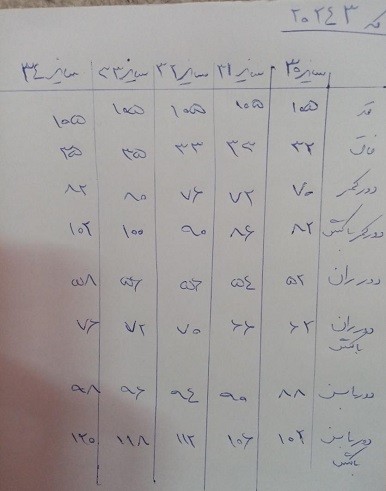 کد ۲۰۲۴۳
سایز ۳۰ سایز ۳۱ سایز ۳۲ سایز ۳۳ سایز ۳۴
قد ۱۰۵ ۱۰۵ ۱۰۵ ۱۰۵ ۱۰۵
فاق ۳۲ ۳۳ ۳۳ ۳۵ ۳۵
دور کمر ۷۰ ۷۲ ۷۶ ۸۰ ۸۲
دور کمر با کش ۸۲ ۸۶ ۹۰ ۱۰۰ ۱۰۲
دور ران ۵۲ ۵۴ ۵۶ ۵۶ ۵۸
دور ران با کش ۶۲ ۶۶ ۷۰ ۷۲ ۷۶
دور باسن ۸۸ ۹۰ ۹۴ ۹۶ ۹۸
دور باسن با کش ۱۰۲ ۱۰۶ ۱۱۲ ۱۱۸ ۱۲۰